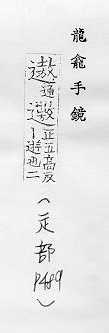 龍龕手鏡
遨通遨正五高反丨遊也二
(辵部 P489)